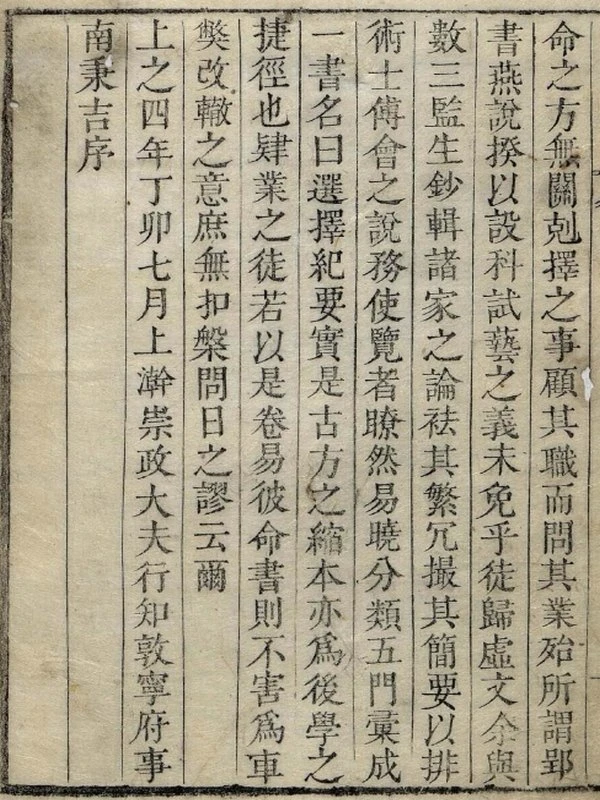 命之方無關剋擇之事顧其職而問其業殆所謂郢
書燕說揆以設科試藝之義未免乎徒歸虛文余與
數三監生鈔輯諸家之論祛其繁冗撮其簡要以排
術士傅會之說務使覽者瞭然易曉分類五門彙成
一書名曰選擇紀要實是古方之縮本亦爲後學之
捷徑也肄業之徒若以是卷易彼命書則不害爲車
獘改轍之意庶無扣槃問日之謬云爾
上之四年丁卯七月上澣崇政大夫行知敦寧府事
南秉吉序